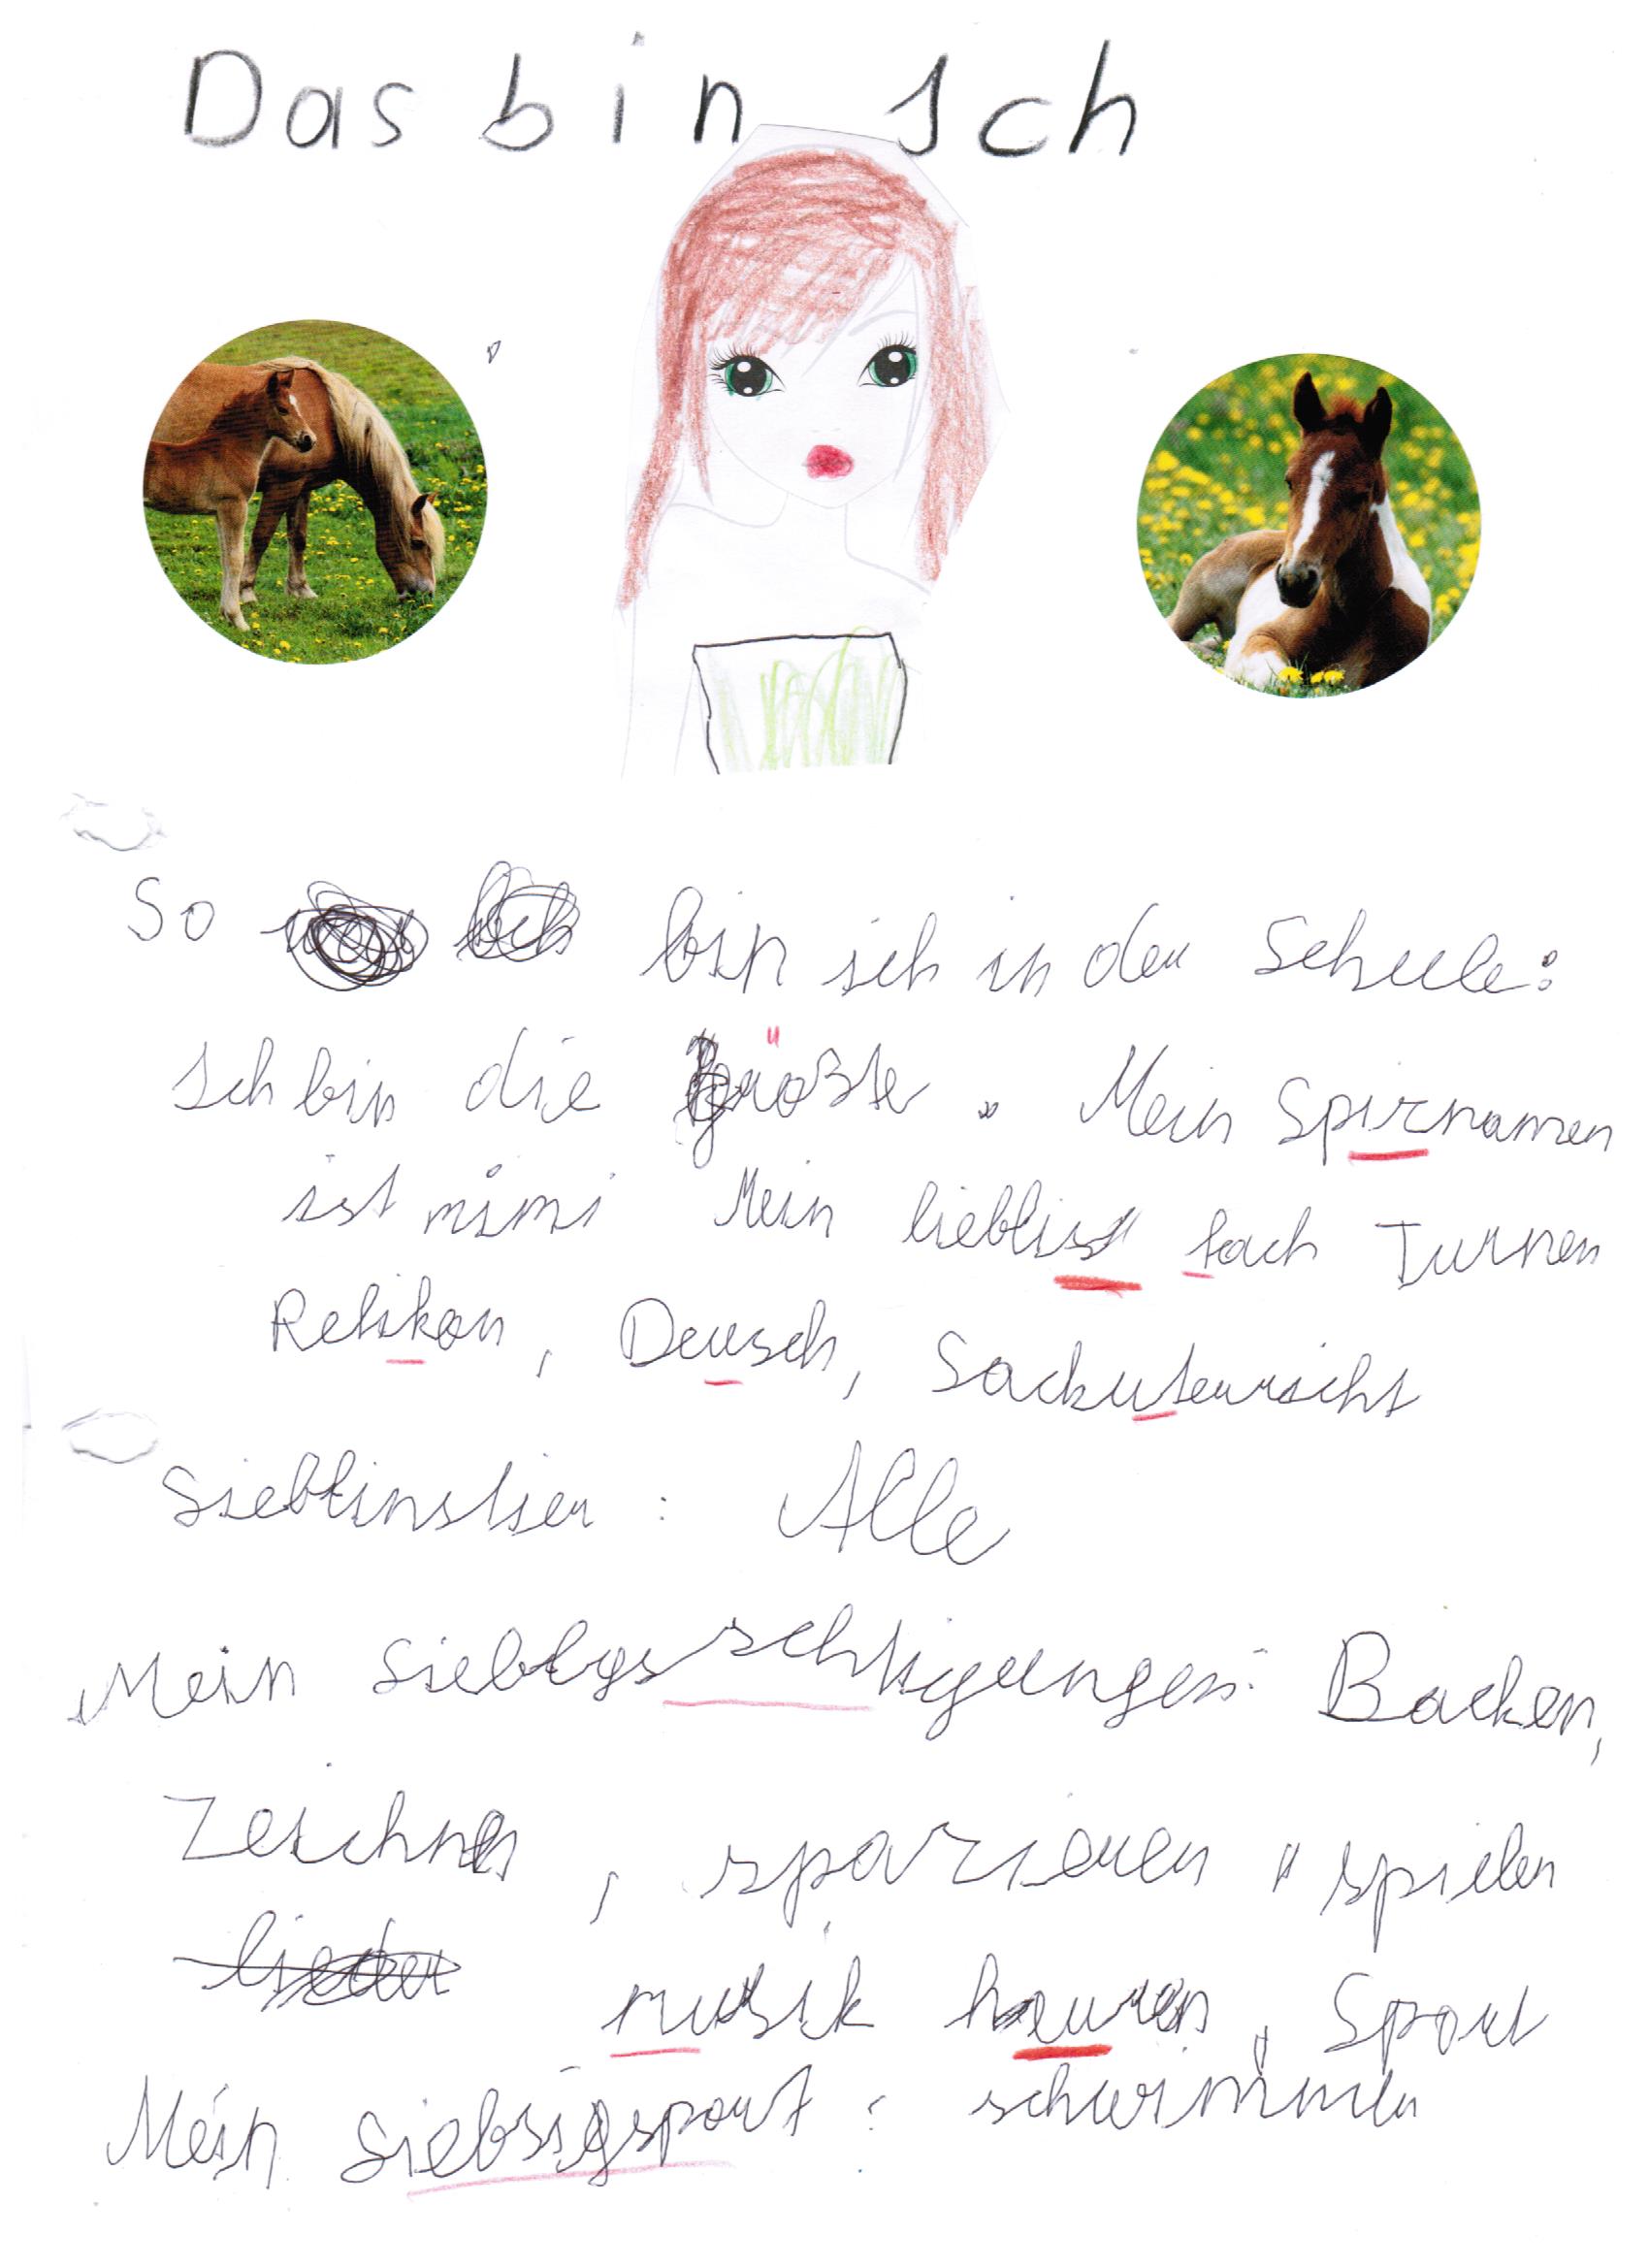 Das bin Ich
So bin ich in der Schule:
Ich bin die größte. Mein Spirnamen
ist mimi Mein lieblist fach Turnen
Relikon, Deusch, Sachuterricht
Lieblinstier: Alle
Mein Backen,
Zeichnen, spazieren, spielen
lieder musik heuren, Sport
Mein Liebsigsport: schwimmen